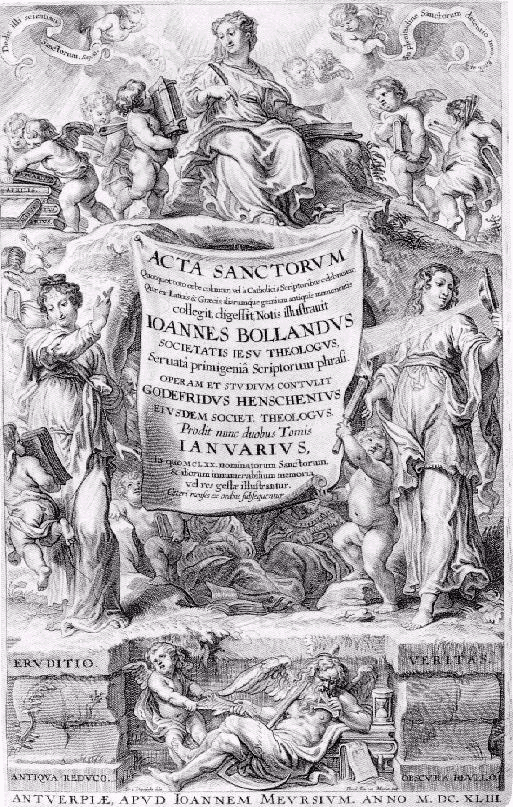 Dedit illi scientiam
Sanctorum. Sap. 10
Sanctorum
ACTA SANCTORVM
Quotquot toto orbe coluntur, vel a Catholicis Scriptoribus celebrantur
Quæ ex Latinis & Græcis, aliarumque gentium antiquis monumentis
collegit, digessit, Notis illustrauit
IOANNES BOLLANDVS
SOCIETATIS IESV THEOLOGVS,
Seruatâ primigeniâ Scriptorum phrasi.
OPERAM ET STVDIVM CONTVLIT
GODEFRIDVS HENSCHENIVS
EIVSDEM SOCIET. THEOLOGVS.
Prodit nunc duobus Tomis
IANVARIVS,
In quo MCLXX. nominatorum Sanctorum,
& aliorum innumerabilium memoria,
vel res gestæ illustrantur.
Ceteri menses ex ordine subsequentur
ERVDITIO
VERITAS.
ANTIQVA REDVCO.
OBSCVRA REVELO
ANTVERPIÆ, APVD IOANNEM MEVRSIVM. ANNO M. DC. XLIII.